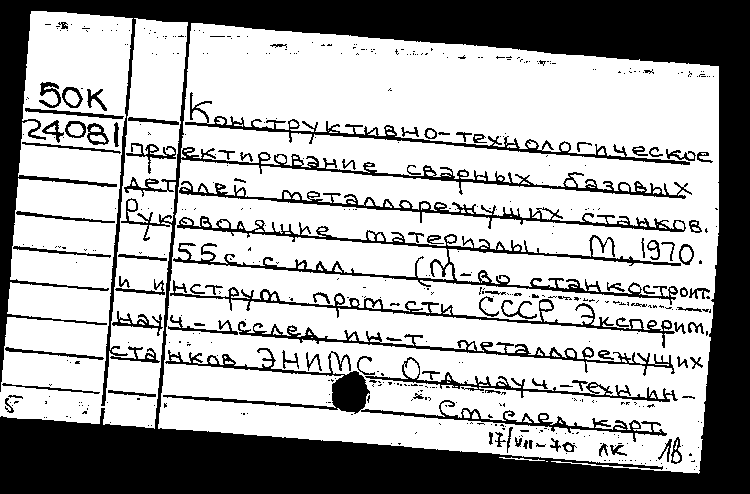 50К
24081
Конструктивно-технологическое
проектирование сварных базовых
деталей металлорежущих станков.
Руководящие материалы. М., 1970.
55 с. с илл. (М-во станкостроит.
и инструм. пром-сти СССР. Эксперим.
науч.-исслед. ин-т металлорежущих
станков. ЭНИМС. Отд. науч.-техн. ин-
См. след. карт.
5
17/VII-70 ЛК 1В.